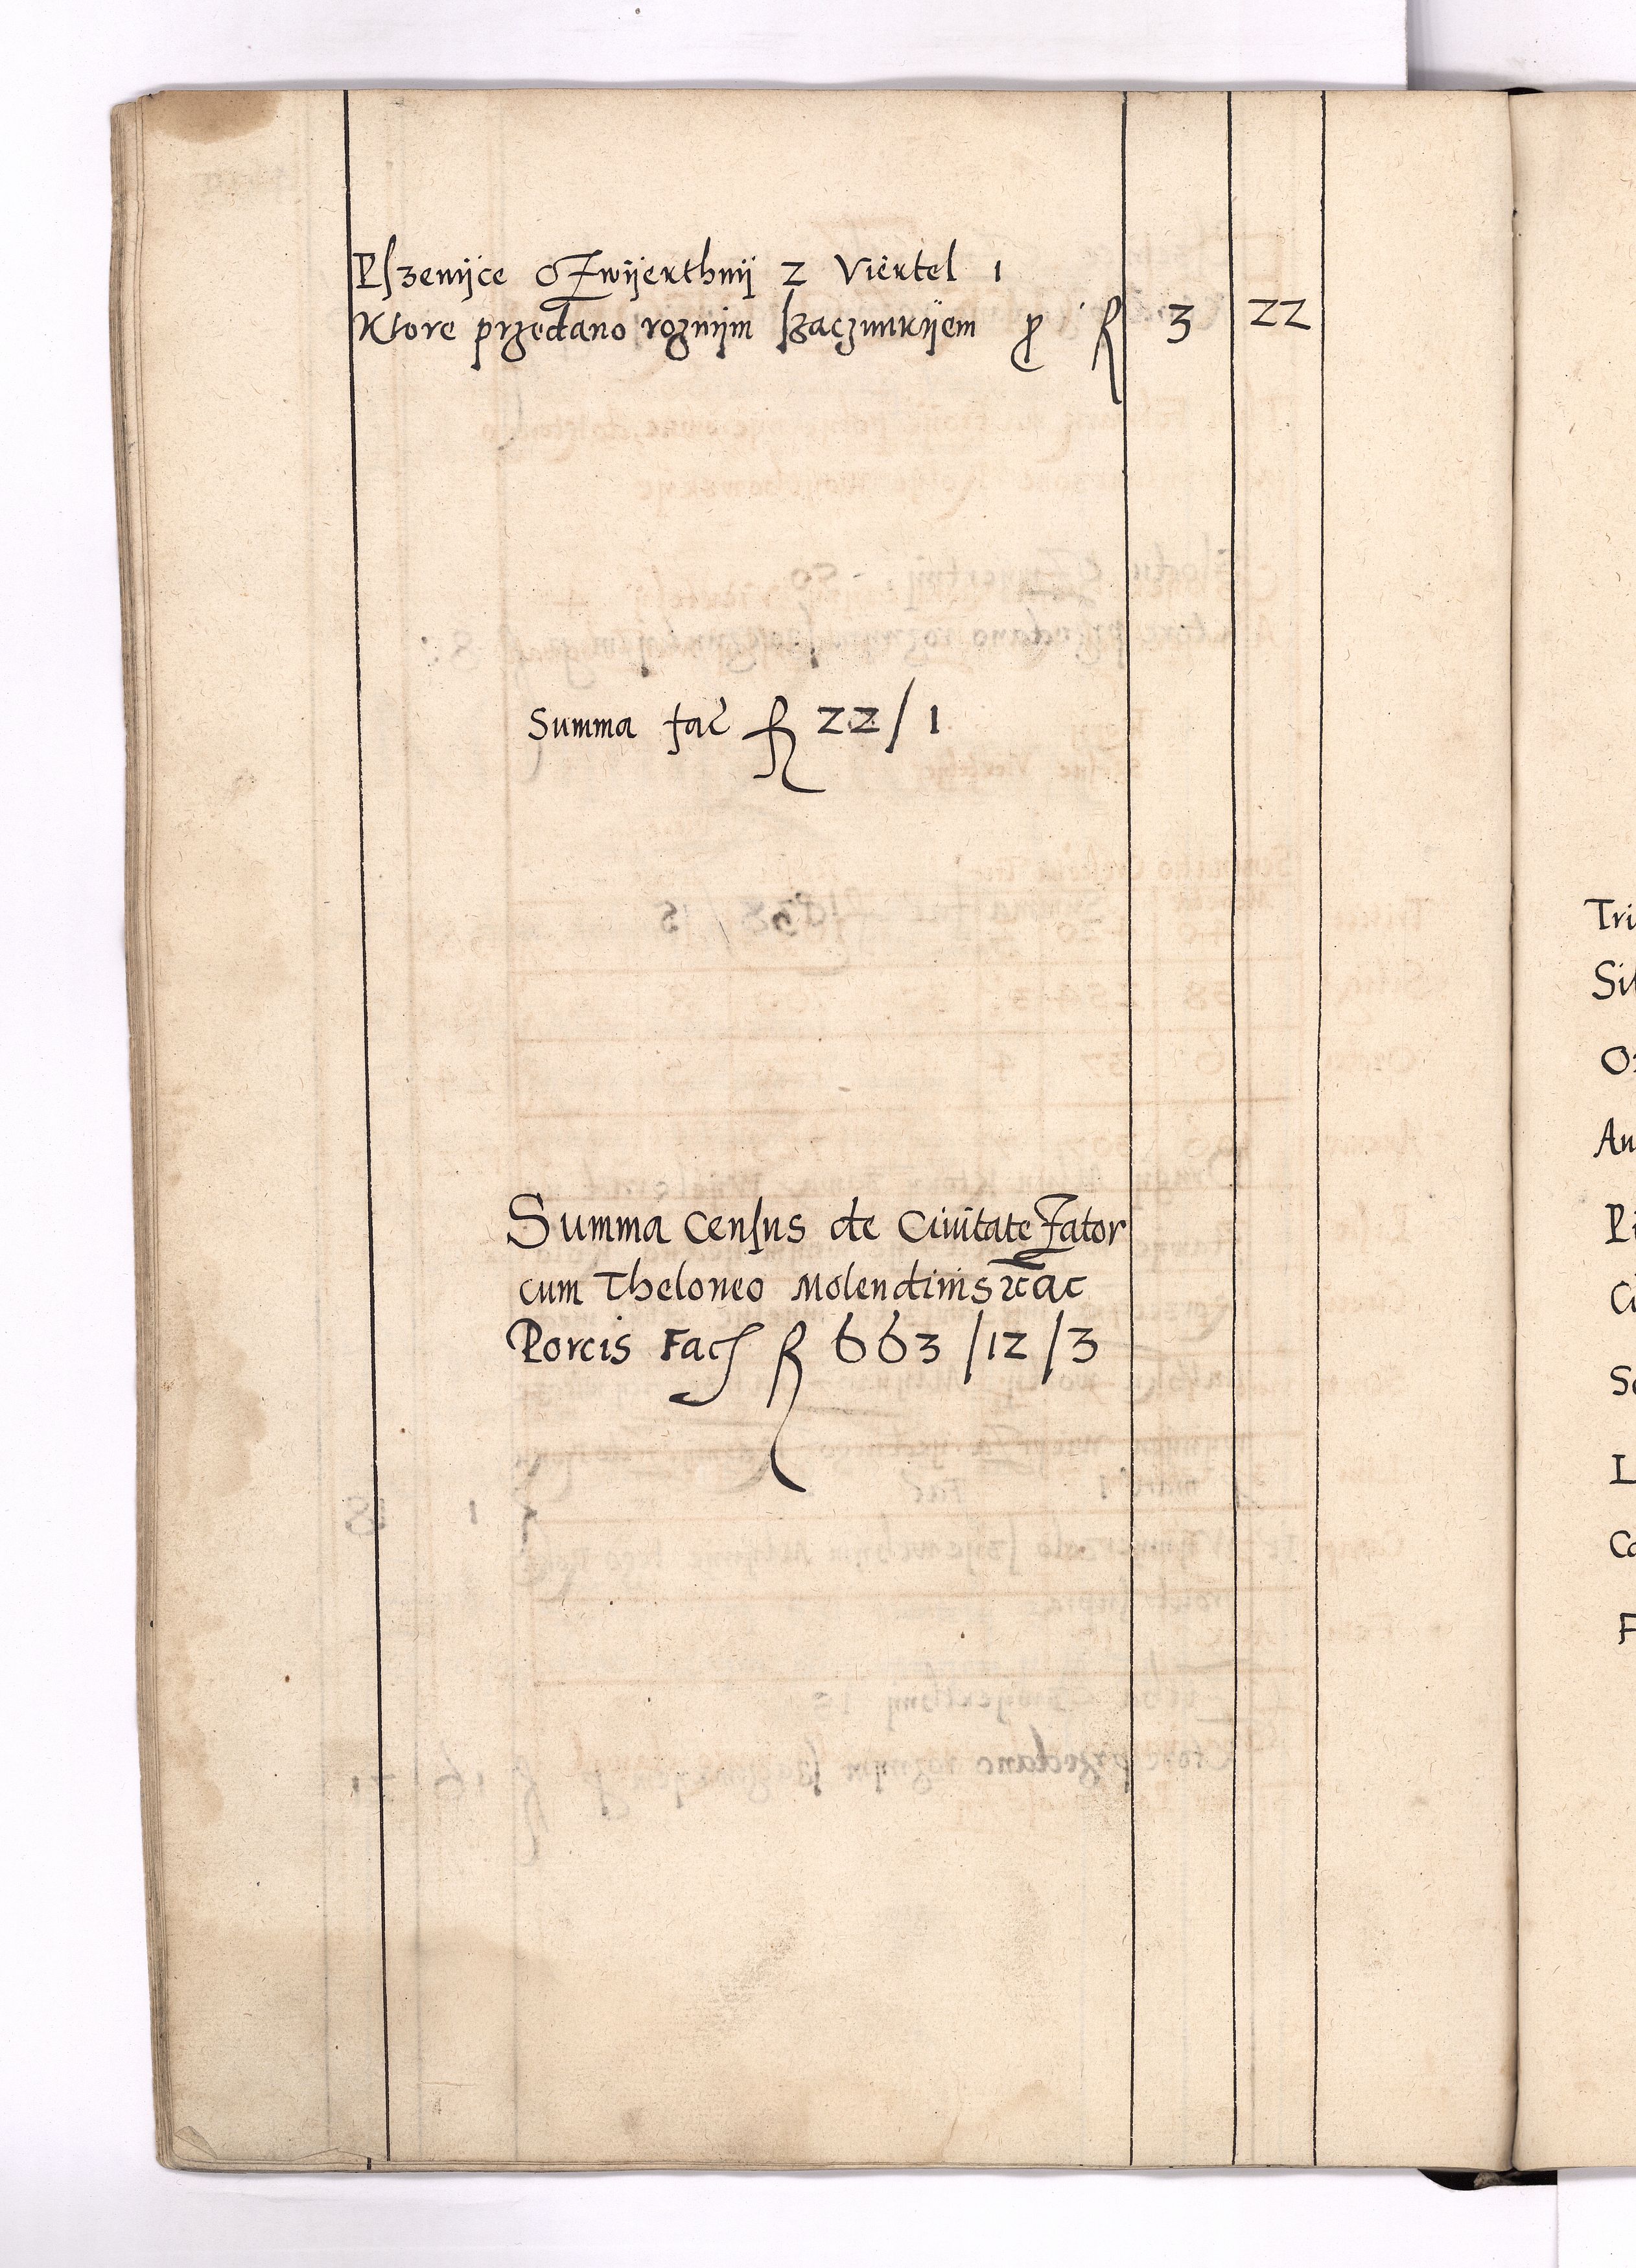 Pszenijce Czwijerthnij 2 Viertel 1
Ktore przedano roznijm szaczunkijem ꝓ fl 3 22
Summa fac fl 22/1
Summa Census de Civitate Zator
cum Theloneo Molendinis ac
Porcis Fac fl 663/12/3
Tri
Sil
An
Pi
Ci
L
Ca
F